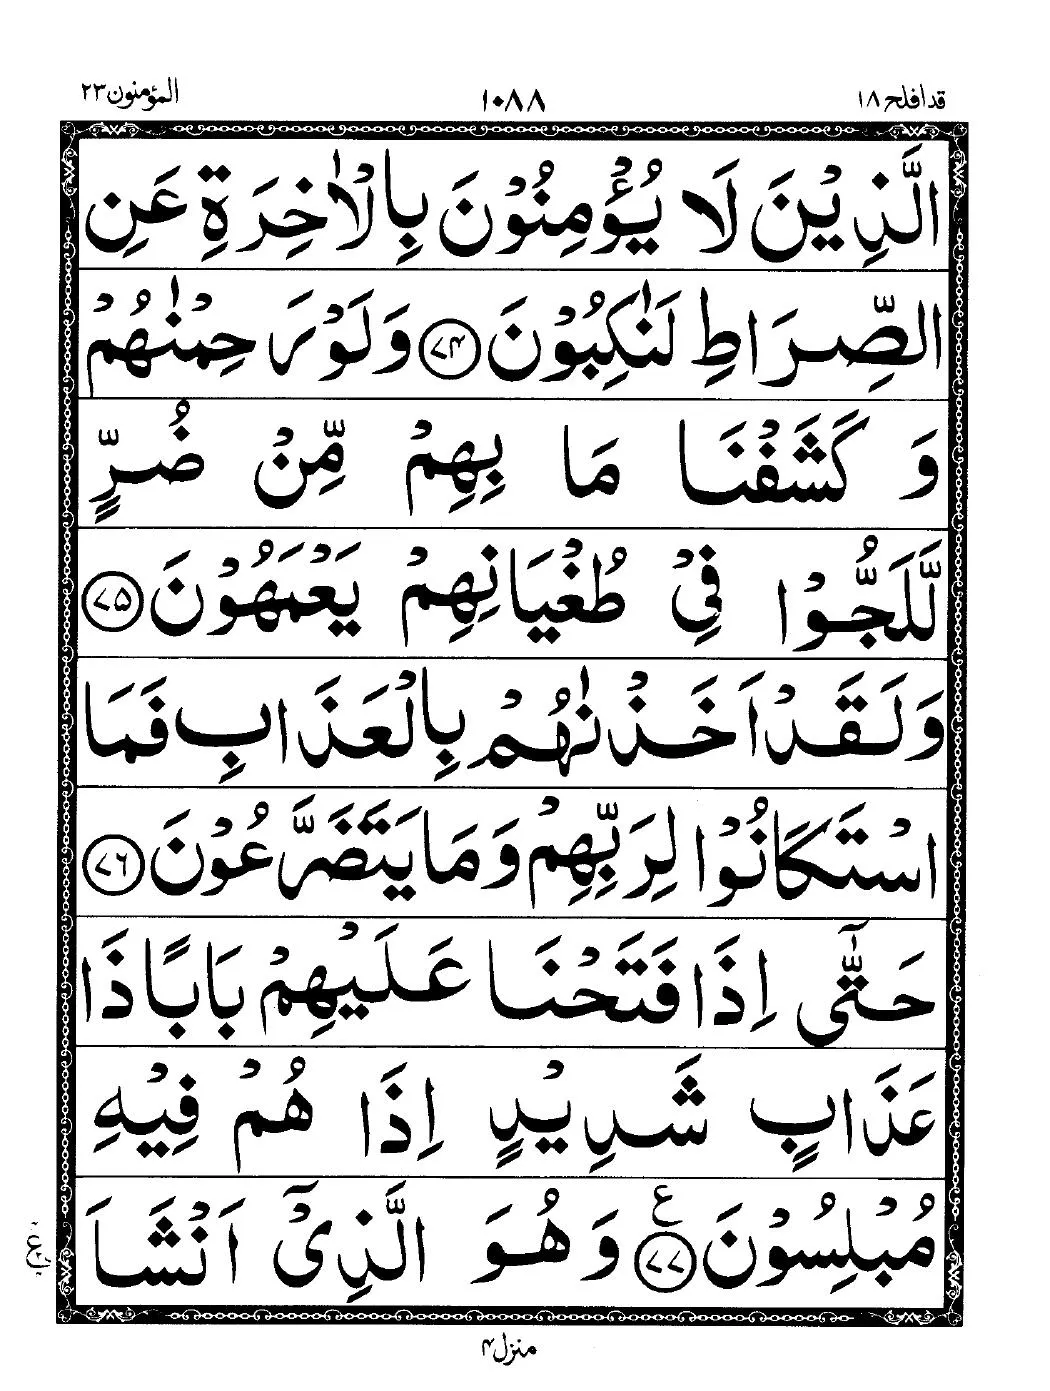 قد افلح ۱۸
۱۰۸۸
المؤمنون ۲۳
الَّذِيْنَ لَا يُؤْمِنُوْنَ بِالْاٰخِرَةِ عَنِ
الصِّرَاطِ لَنٰكِبُوْنَ ۷۴ وَلَوْ رَحِمْنٰهُمْ
وَ كَشَفْنَا مَا بِهِمْ مِّنْ ضُرٍّ
لَّلَجُّوْا فِيْ طُغْيَانِهِمْ يَعْمَهُوْنَ ۷۵
وَلَقَدْ اَخَذْنٰهُمْ بِالْعَذَابِ فَمَا
اسْتَكَانُوْا لِرَبِّهِمْ وَمَا يَتَضَرَّعُوْنَ ۷۶
حَتّٰٓى اِذَا فَتَحْنَا عَلَيْهِمْ بَابًا ذَا
عَذَابٍ شَدِيْدٍ اِذَا هُمْ فِيْهِ
مُبْلِسُوْنَ ۷۷ ع وَهُوَ الَّذِيْٓ اَنْشَاَ
منزل ۴